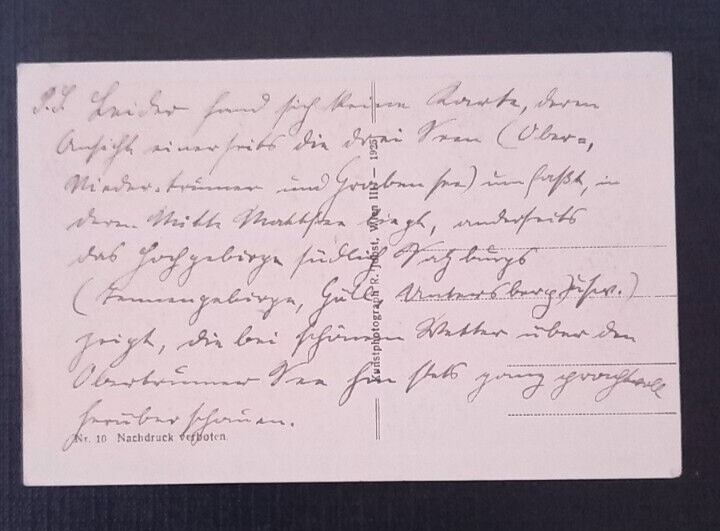 P.S. Leider fand sich keine Karte, deren
Ansicht einerseits die drei Seen (Ober-,
Nieder-trumer und Grabensee) umfaßt, in
deren Mitte Mattsee liegt, anderseits
das Hochgebirge südlich Salzburgs
(Tennengebirge, Göll, Untersberg usw.)
zeigt, die bei schönem Wetter über den
Obertrumer See hin stets ganz prachtvoll
herüberschauen.
Nr. 10 Nachdruck verboten
Kunstphotograph R. Jobst, Wien III/2 — 1925